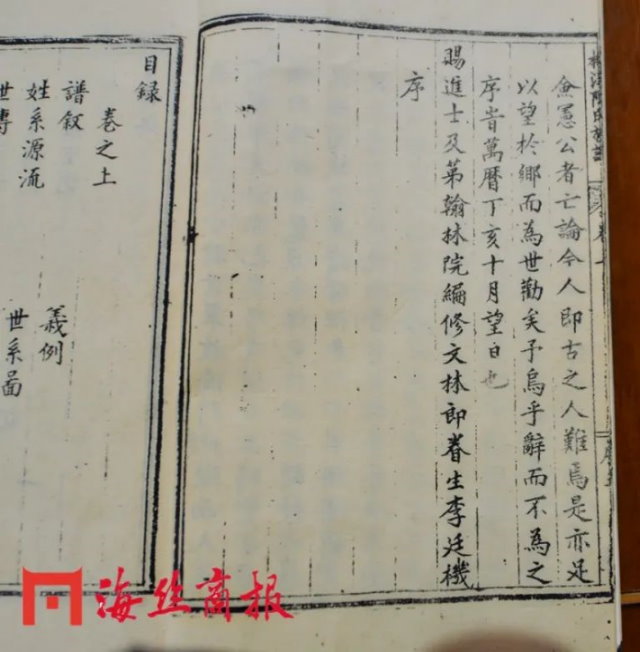 僉憲公者亡論今人即古之人難焉是亦足
以望於鄉而為世勸矣予烏乎辭而不為之
序旹萬曆丁亥十月望日也
賜進士及第翰林院編修文林郎眷生李廷機
序
目錄
卷之上
譜叙
義例
姓系源流
世系啚
世傳
海丝商报